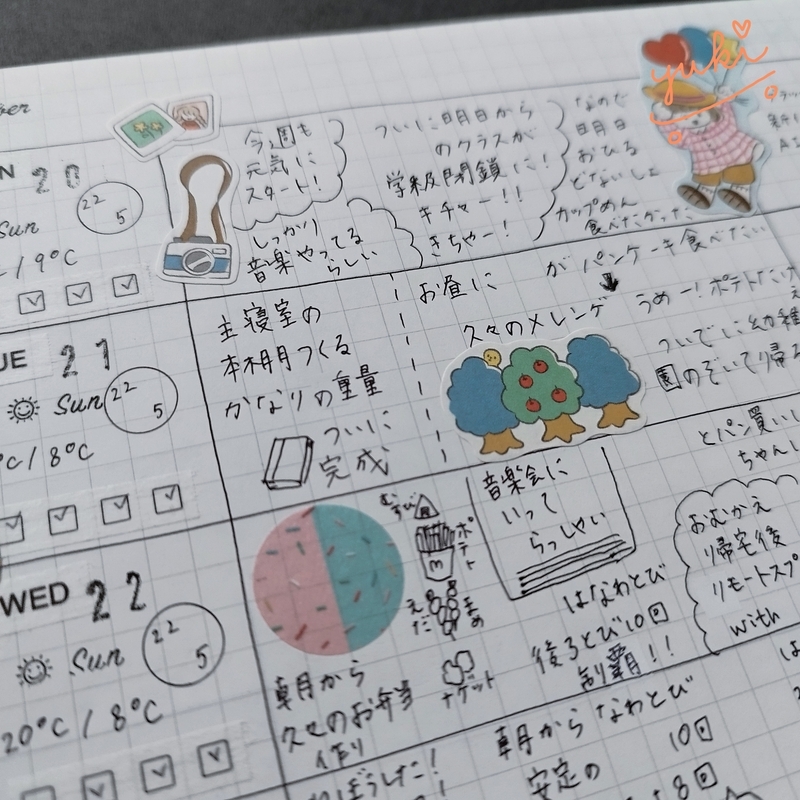 yuki
20
今週も
元気に
スタート!
しっかり
音楽やってる
らしい
ついに明日から
のクラスが
学級閉鎖に!
キチャー!!
きちゃー!
なので
明日
おひる
どないしよ
カップめん
食べたかった
22
5
Sun
/9°C
21
Sun
22
5
°C/8°C
主寝室の
本棚つくる
かなりの重量
ついに
完成
お昼に
がパンケーキ食べたい
久々のメレンゲ
うめー!ポテトだけ
ついでに幼稚
園のぞいて帰る
WED 22
Sun
22
5
20°C/8°C
朝から
久々のお弁当
作り
むすび
ポテト
m
えだ
まめ
ナゲット
音楽会に
いって
らっしゃい
はなわとび
後ろとび10回
制覇!!
とパン買いし
ちゃんし
おむかえ
帰宅後
リモートスプ
with
朝からなわとび
10回
安定の
8回
ねぼうした!